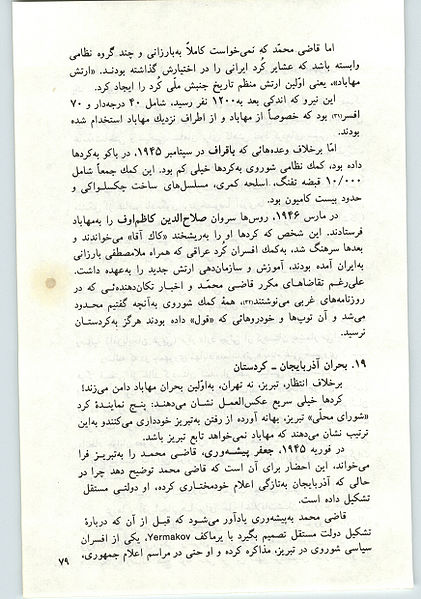 اما قاضی محمّد که نمی‌خواست کاملاً به‌بارزانی و چند گروه نظامی
وابسته باشد که عشایر کُرد ایرانی را در اختیارش گذاشته بودنـد. «ارتش
مهاباد»، یعنی اوّلین ارتش منظم تاریخ جنبش ملّی کُرد را ایجاد کرد.
این نیرو که اندکی بعد به۱۲۰۰ نفر رسید، شامل ۴۰ درجه‌دار و ۷۰
افسر(۳۱) بود که خصوصاً از مهاباد و از اطراف نزدیك مهاباد استخدام شده
بودند.
امّا برخلاف وعده‌هائی که باقراف در سپتامبر ۱۹۴۵، در باکو به‌کردها
داده بود، کمك نظامی شوروی به‌کردها خیلی کم بود. این کمك جمعاً شامل
۱۰/۰۰۰ قبضه تفنگ، اسلحه کمری، مسلسل‌های ساخت چکسلـواکی و
حدود بیست کامیون بود.
در مارس ۱۹۴۶، روس‌ها سروان صلاح‌الدین کاظم‌اوف را به‌مهاباد
فرستادند. این شخص که کردها او را به‌ریشخند «کاك آقا» می‌خواندند و
بعدها سرهنگ شد، به‌کمك افسران کُرد عراقی که همراه ملامصطفی بارزانی
به‌ایران آمده بودند، آموزش و سازمان‌دهی ارتش جدید را به‌عهده داشت.
علی‌رغـم تقاضاهـای مکرر قاضی محمّـد و اخبـار تکان‌دهنده‌ئـی که در
روزنامه‌های غربی می‌نوشتند(۳۲)، همهٔ کمك شوروی به‌آنچه گفتیم محـدود
می‌شد و آن توپ‌ها و خودروهائی که «قول» داده بودند هرگز به‌کردستـان
نرسید.
۱۹. بحران آذربایجان ـ کردستان
برخلاف انتظار، تبریز، نه تهران، به‌اوّلین بحران مهاباد دامن می‌زند!
کردها خیلی سریع عکس‌العمل نشان می‌دهند: پنـج نماینـدهٔ کرد
«شورای محلّی» تبریز، بهانه آورده از رفتن به‌تبریز خودداری می‌کنندو به‌این
ترتیب نشان می‌دهند که مهاباد نمی‌خواهد تابع تبریز باشد.
در فوریه ۱۹۴۵، جعفر پیشـه‌وری، قاضی محمـد را به‌تبریـز فرا
می‌خواند، این احضار برای آن است که قاضی محمد توضیح دهد چرا در
حالی که آذربایجان به‌تازگی اعلام خودمختاری کرده، او دولتـی مستقل
تشکیل داده است.
قاضی محمد به‌پیشه‌وری یادآور می‌شـود که قبـل از آن که دربارهٔ
تشکیل دولت مستقل تصمیم بگیرد با یرماکف Yermakov، یکی از افسران
سیاسی شوروی در تبریز، مذاکره کرده و او حتی در مراسم اعلام جمهوری،
۷۹